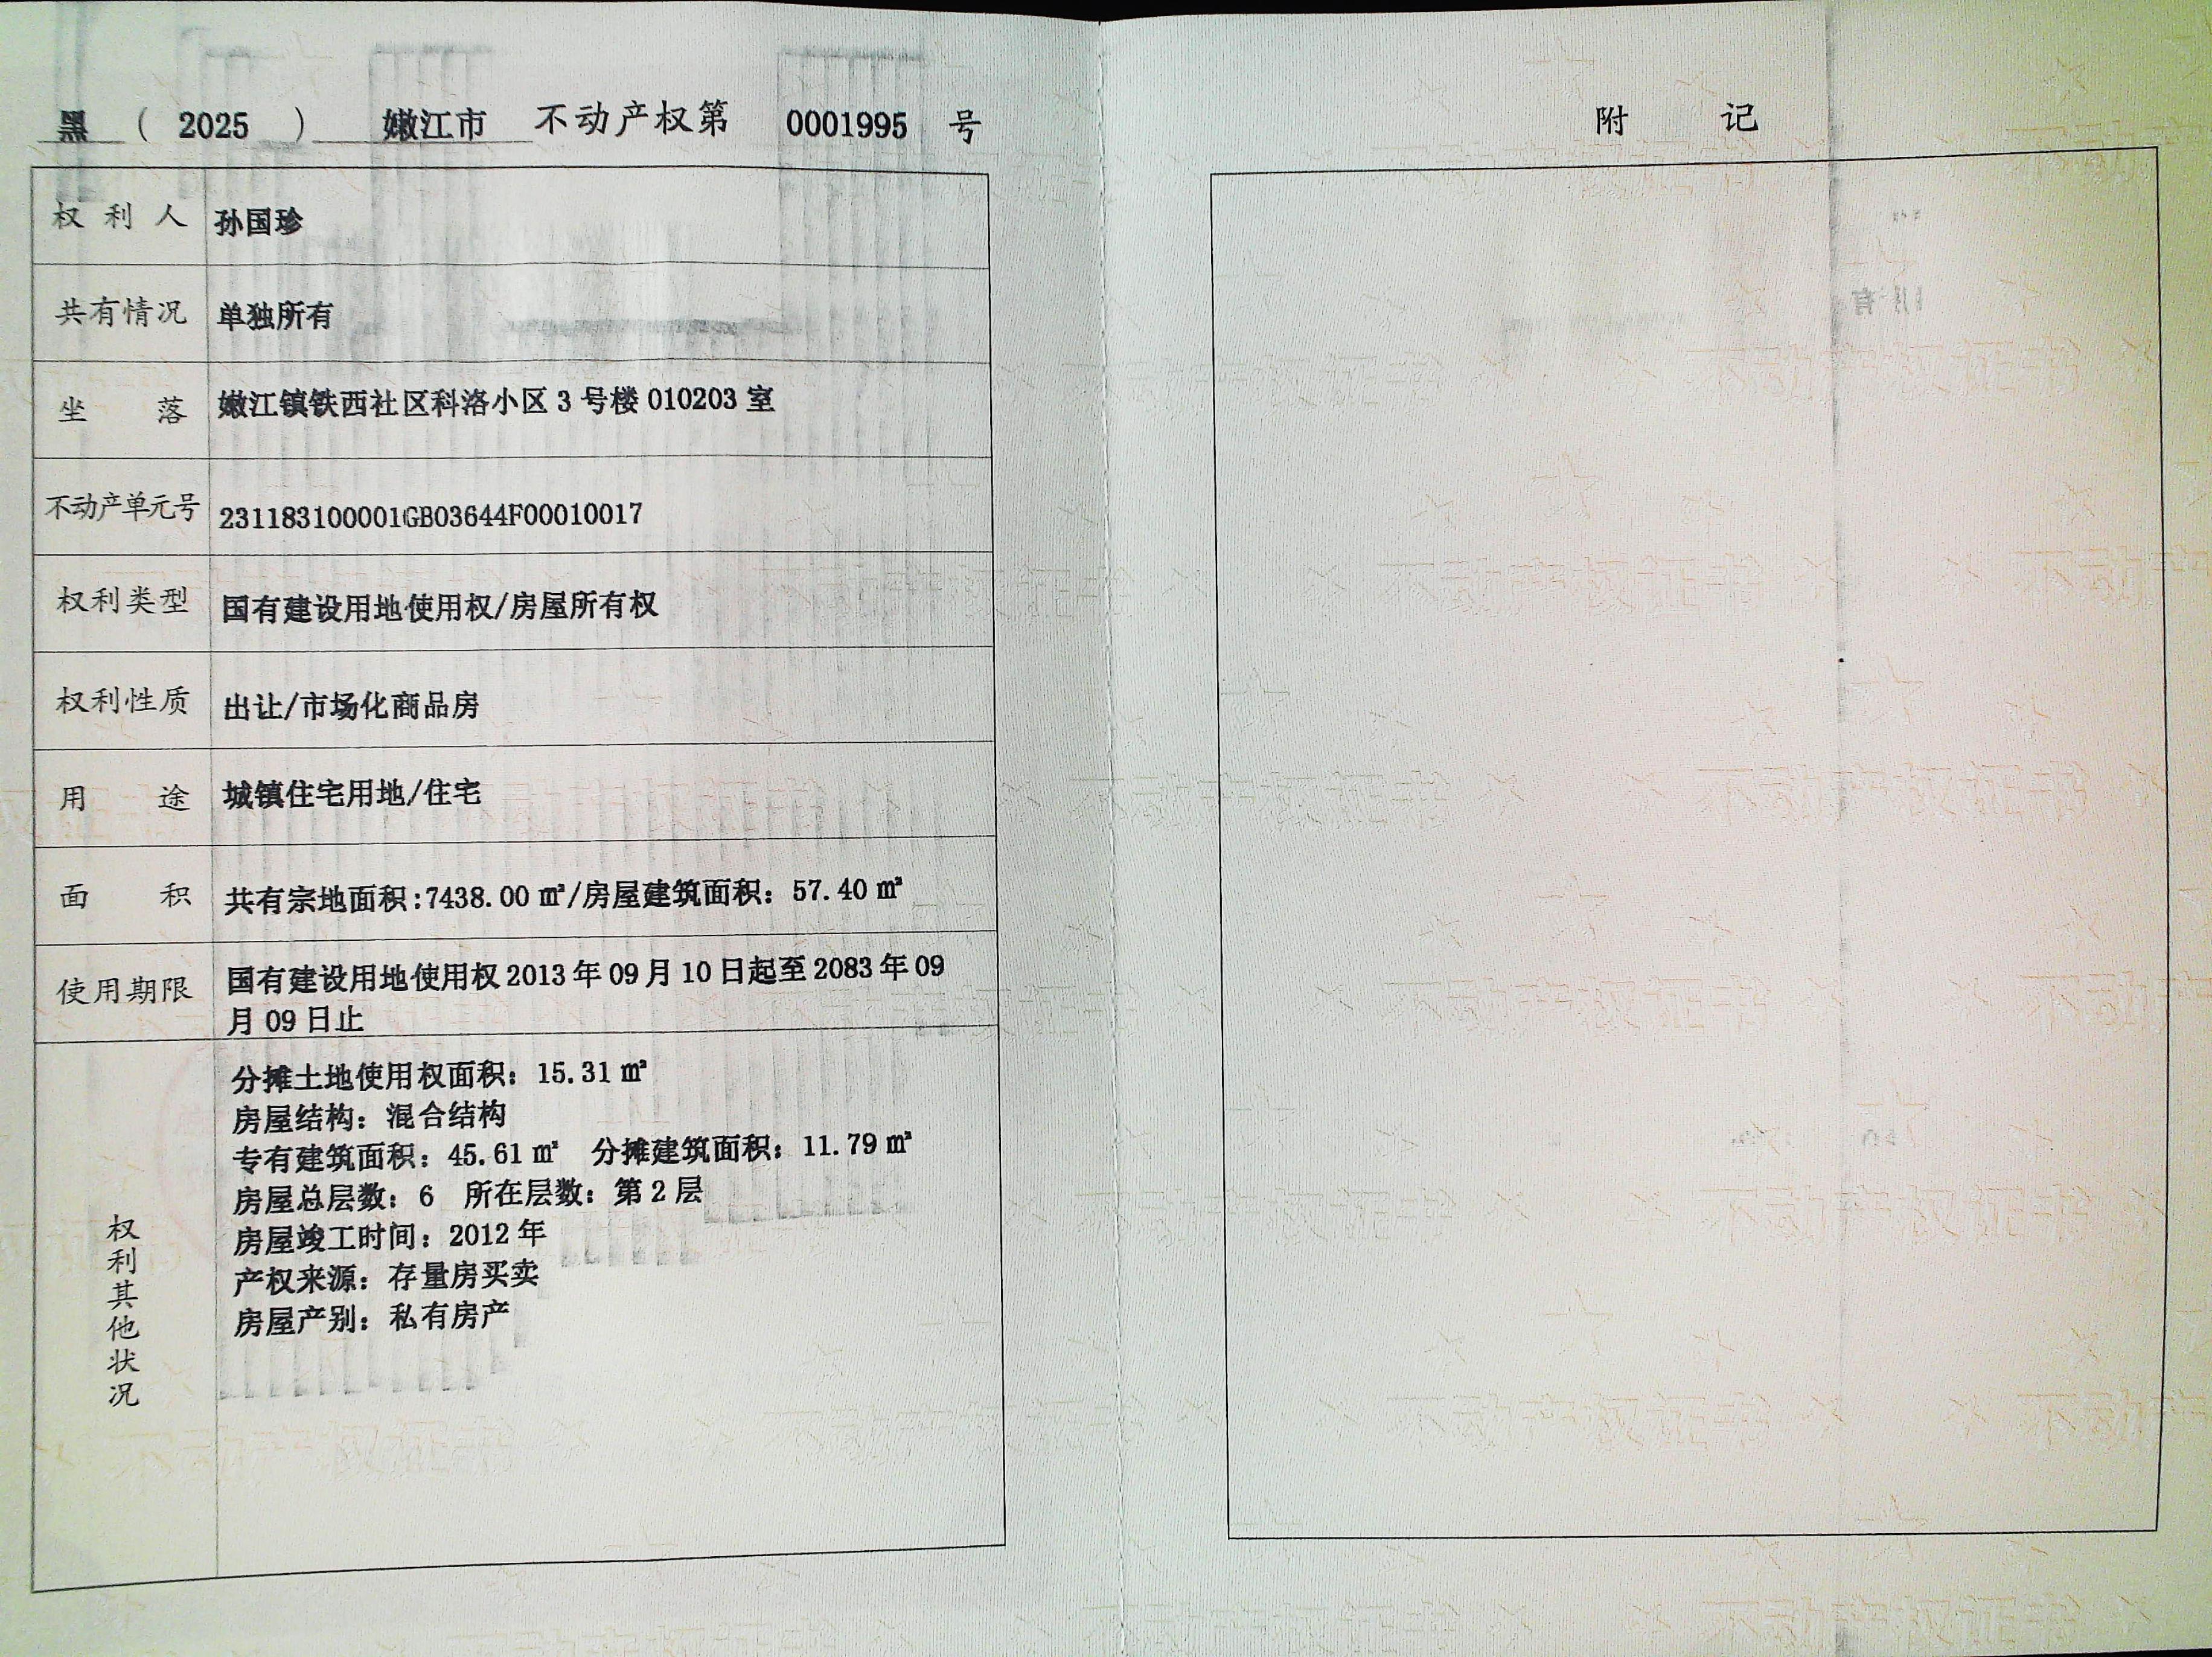 黑 ( 2025 ) 嫩江市 不动产权第 0001995 号
权利人 孙国珍
共有情况 单独所有
坐落 嫩江镇铁西社区科洛小区 3 号楼 010203 室
不动产单元号 231183100001GB03644F00010017
权利类型 国有建设用地使用权/房屋所有权
权利性质 出让/市场化商品房
用途 城镇住宅用地/住宅
面积 共有宗地面积:7438.00 ㎡/房屋建筑面积：57.40 ㎡
使用期限 国有建设用地使用权 2013 年 09 月 10 日起至 2083 年 09
月 09 日止
权利其他状况
分摊土地使用权面积：15.31 ㎡
房屋结构：混合结构
专有建筑面积：45.61 ㎡ 分摊建筑面积：11.79 ㎡
房屋总层数：6 所在层数：第 2 层
房屋竣工时间：2012 年
产权来源：存量房买卖
房屋产别：私有房产
附 记